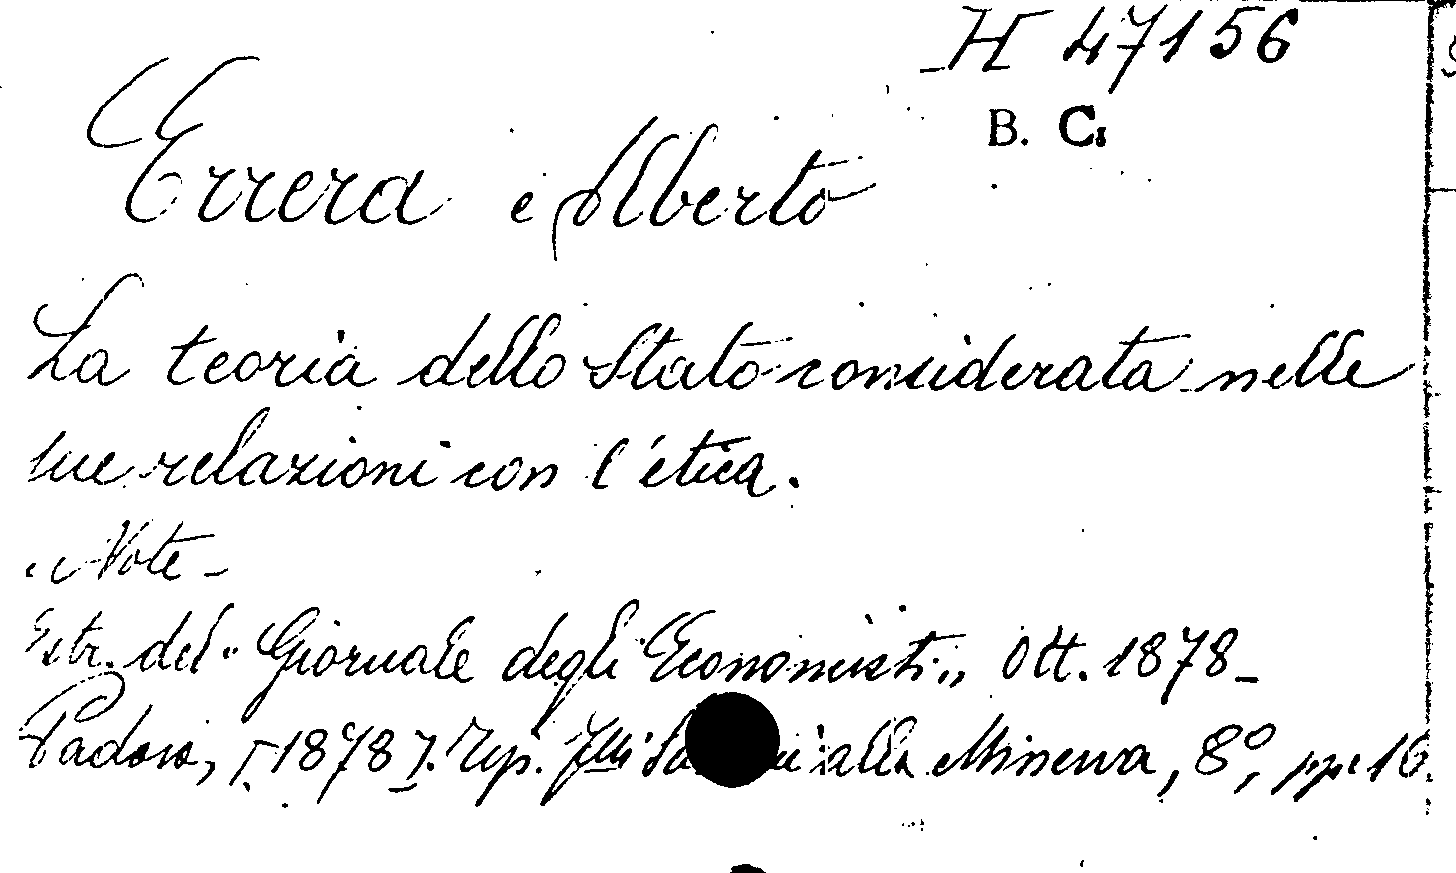 H 47156
B. C.
Errera Alberto
La teoria dello Stato considerata nelle
sue relazioni con l'etica.
Note -
Estr. del "Giornale degli Economisti„ Ott. 1878 -
Padova, [1878]. Tip. F.lli alla Minerva, 8°, pp. 16.